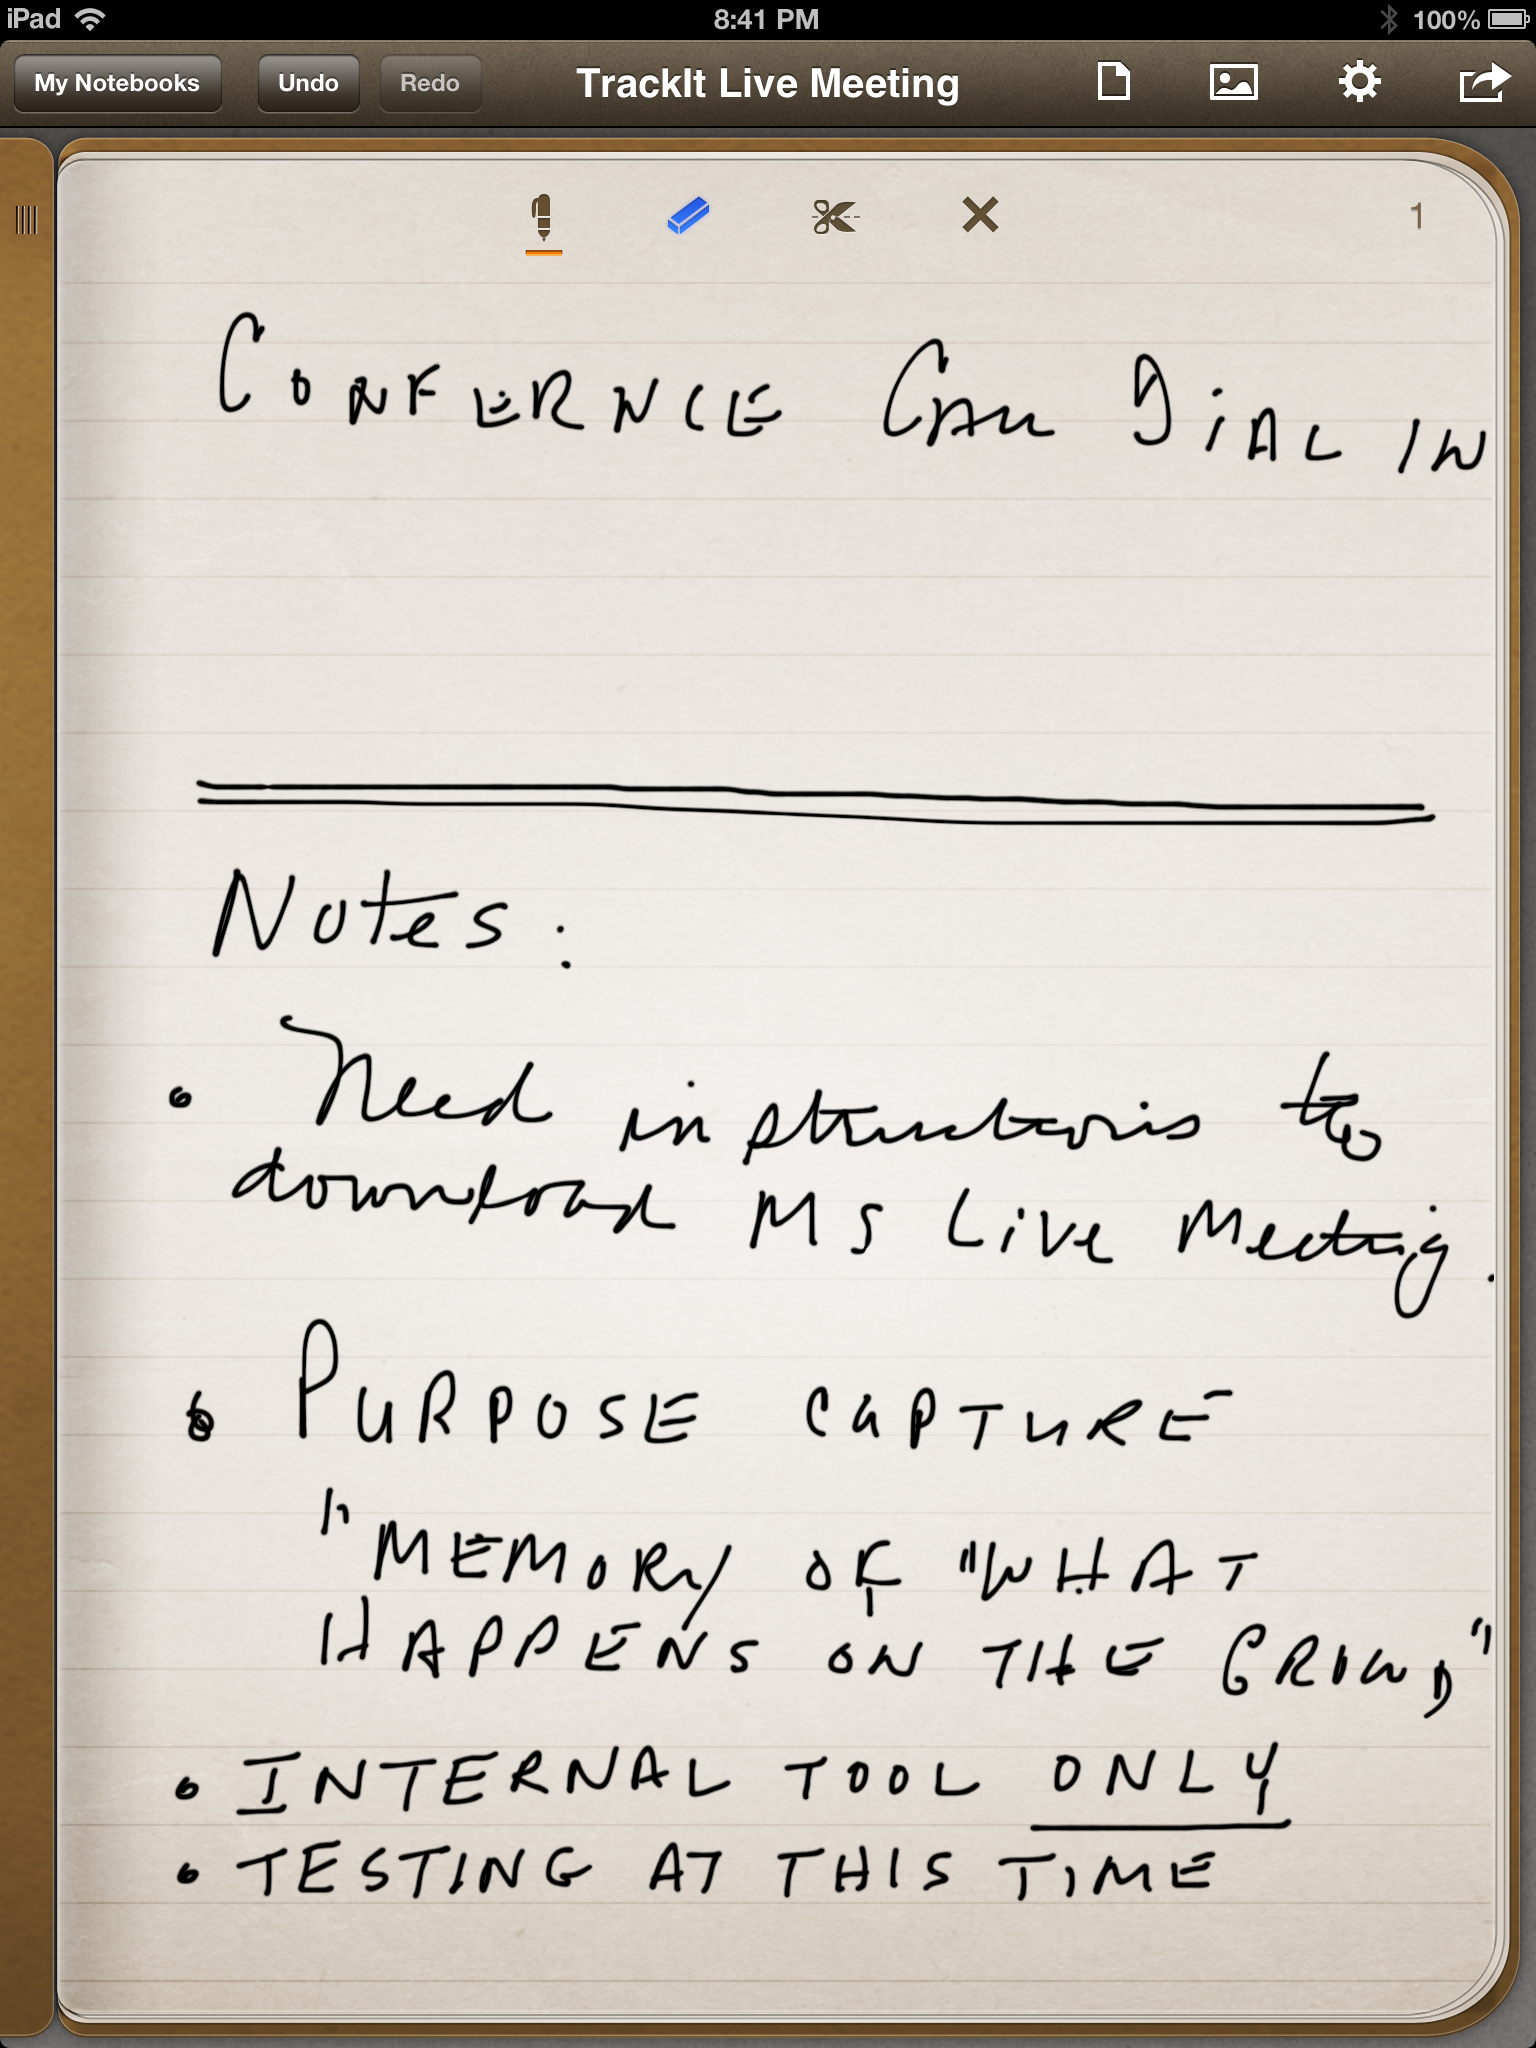 iPad 8:41 PM 100%
My Notebooks Undo Redo TrackIt Live Meeting
1
CONFERENCE Call DiAL IN
Notes:
• Need instructions to
download MS Live Meeting.
• PURPOSE CAPTURE
"MEMORY OF "WHAT
HAPPENS ON THE GROUND"
• INTERNAL TOOL ONLY
• TESTING AT THIS TIME